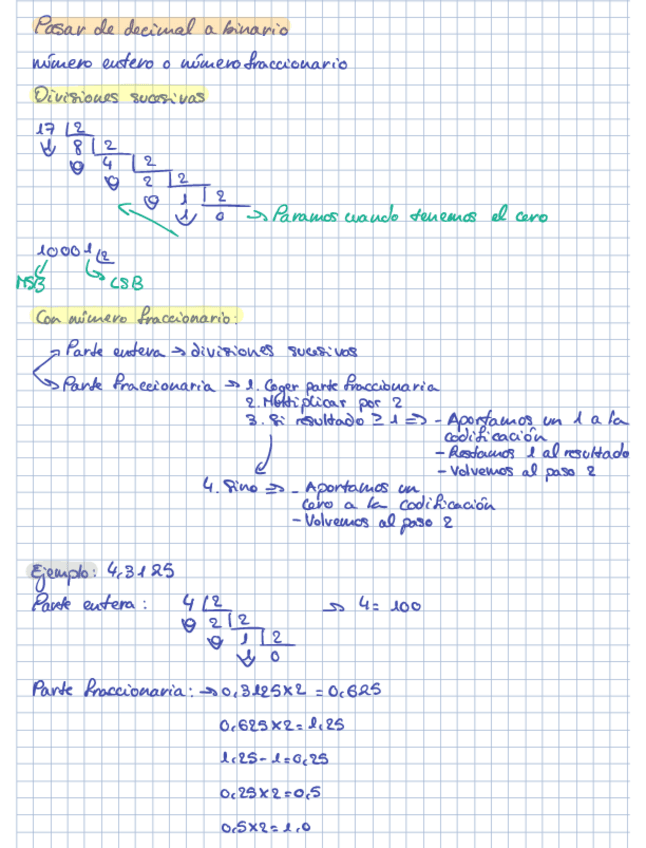 Pasar de decimal a binario
número entero o número fraccionario
Divisiones sucesivas
17 | 2
0 8 | 2
0 4 | 2
0 2 | 2
0 1 | 2
1 0 → Paramos cuando tenemos el cero
10001 |2
MSB LSB
Con número fraccionario:
→ Parte entera → divisiones sucesivas
→ Parte fraccionaria → 1. Coger parte fraccionaria
2. Multiplicar por 2
3. Si resultado ≥ 1 => - Aportamos un 1 a la
codificación
- Restamos 1 al resultado
- Volvemos al paso 2
4. Sino => - Aportamos un
cero a la codificación
- Volvemos al paso 2
Ejemplo: 4,3125
Parte entera: 4 | 2 → 4 = 100
0 2 | 2
0 1 | 2
1 0
Parte fraccionaria: → 0,3125x2 = 0,625
0,625x2 = 1,25
1,25-1=0,25
0,25x2=0,5
0,5x2=1,0